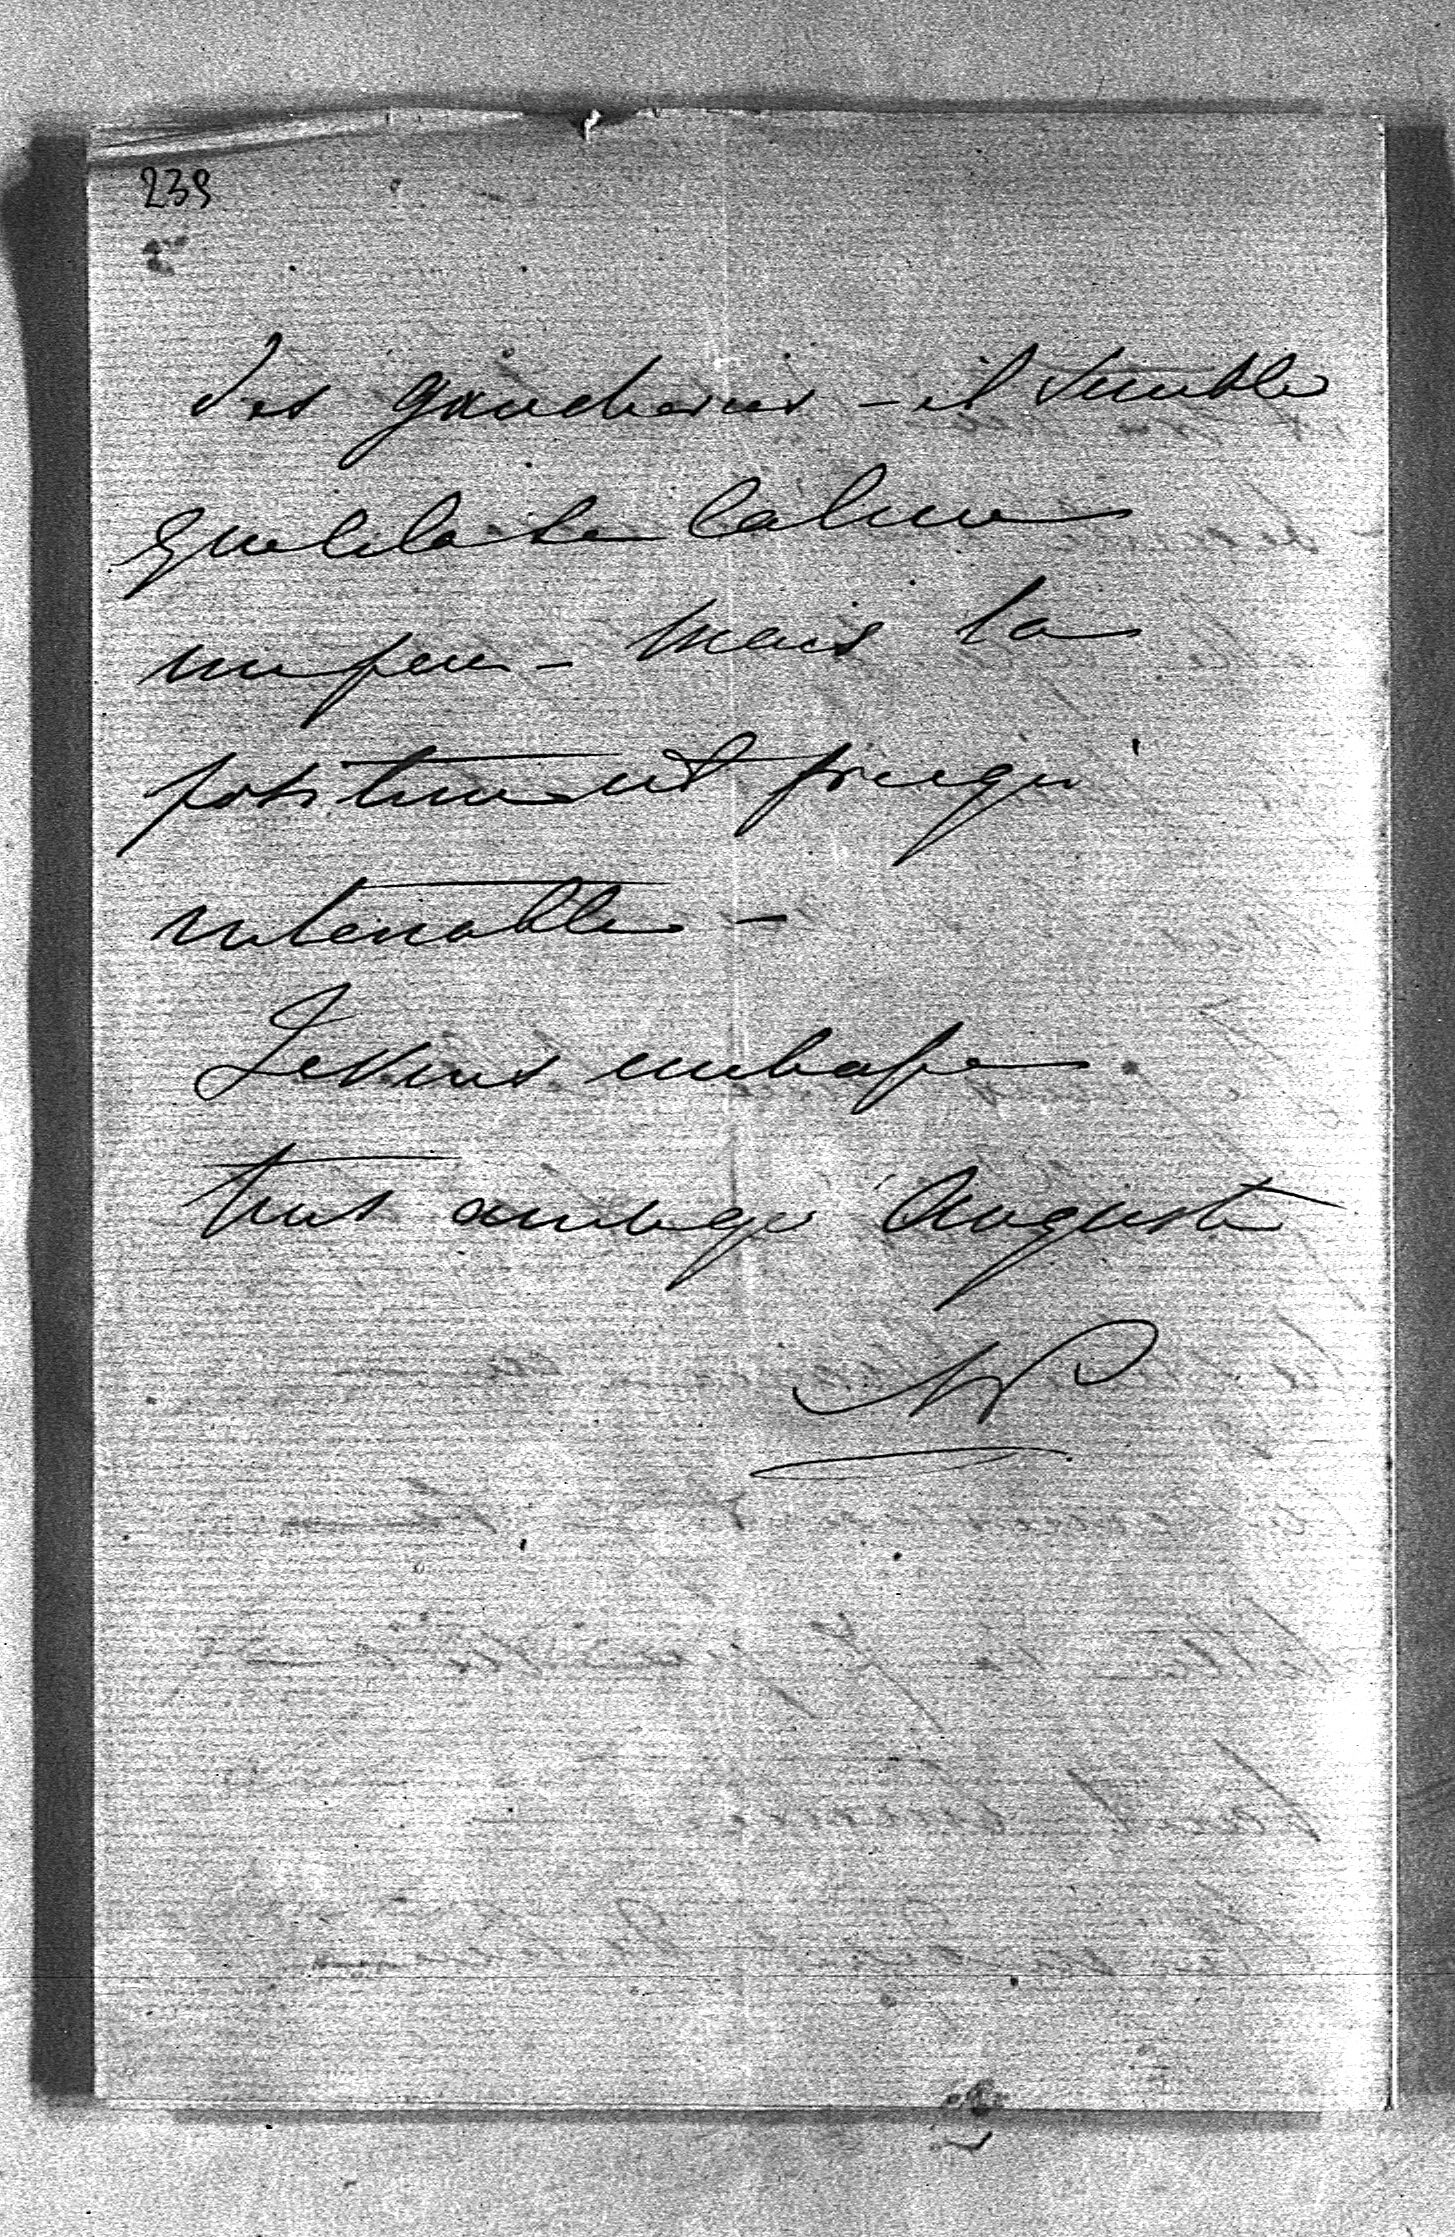 239
des gaucheries - il semble
que cela se calme
un peu - mais la
position est presqu'
intenable -
Je vous embrasse
tous ainsi qu' Auguste
NP